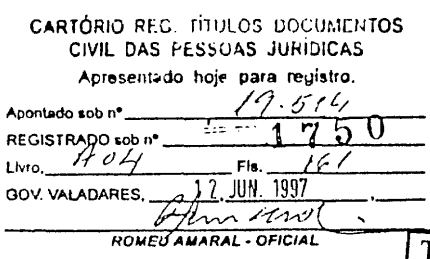 CARTÓRIO REG. TÍTULOS DOCUMENTOS
CIVIL DAS PESSOAS JURÍDICAS
Apresentado hoje para registro.
Apontado sob nº 19.514
REGISTRADO sob nº 1750
Livro, A04 Fls. 161
GOV. VALADARES, 12. JUN. 1997
ROMEU AMARAL - OFICIAL